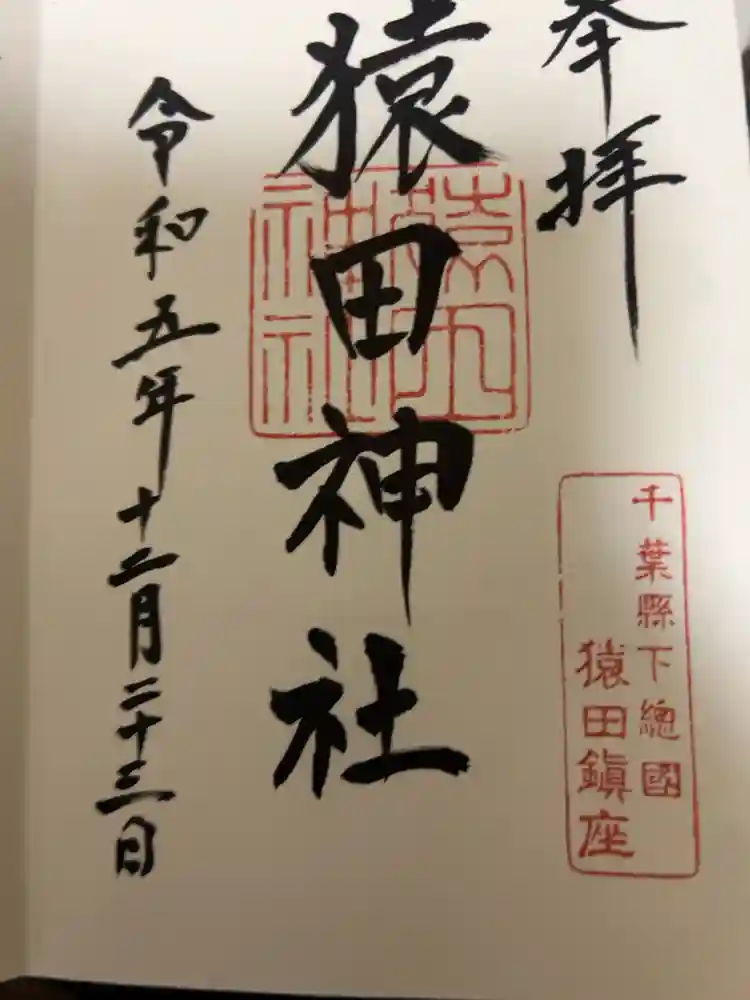 奉拝
千葉縣下總國
猿田鎭座
猿田神社
猿田
神社
令和五年十二月二十三日